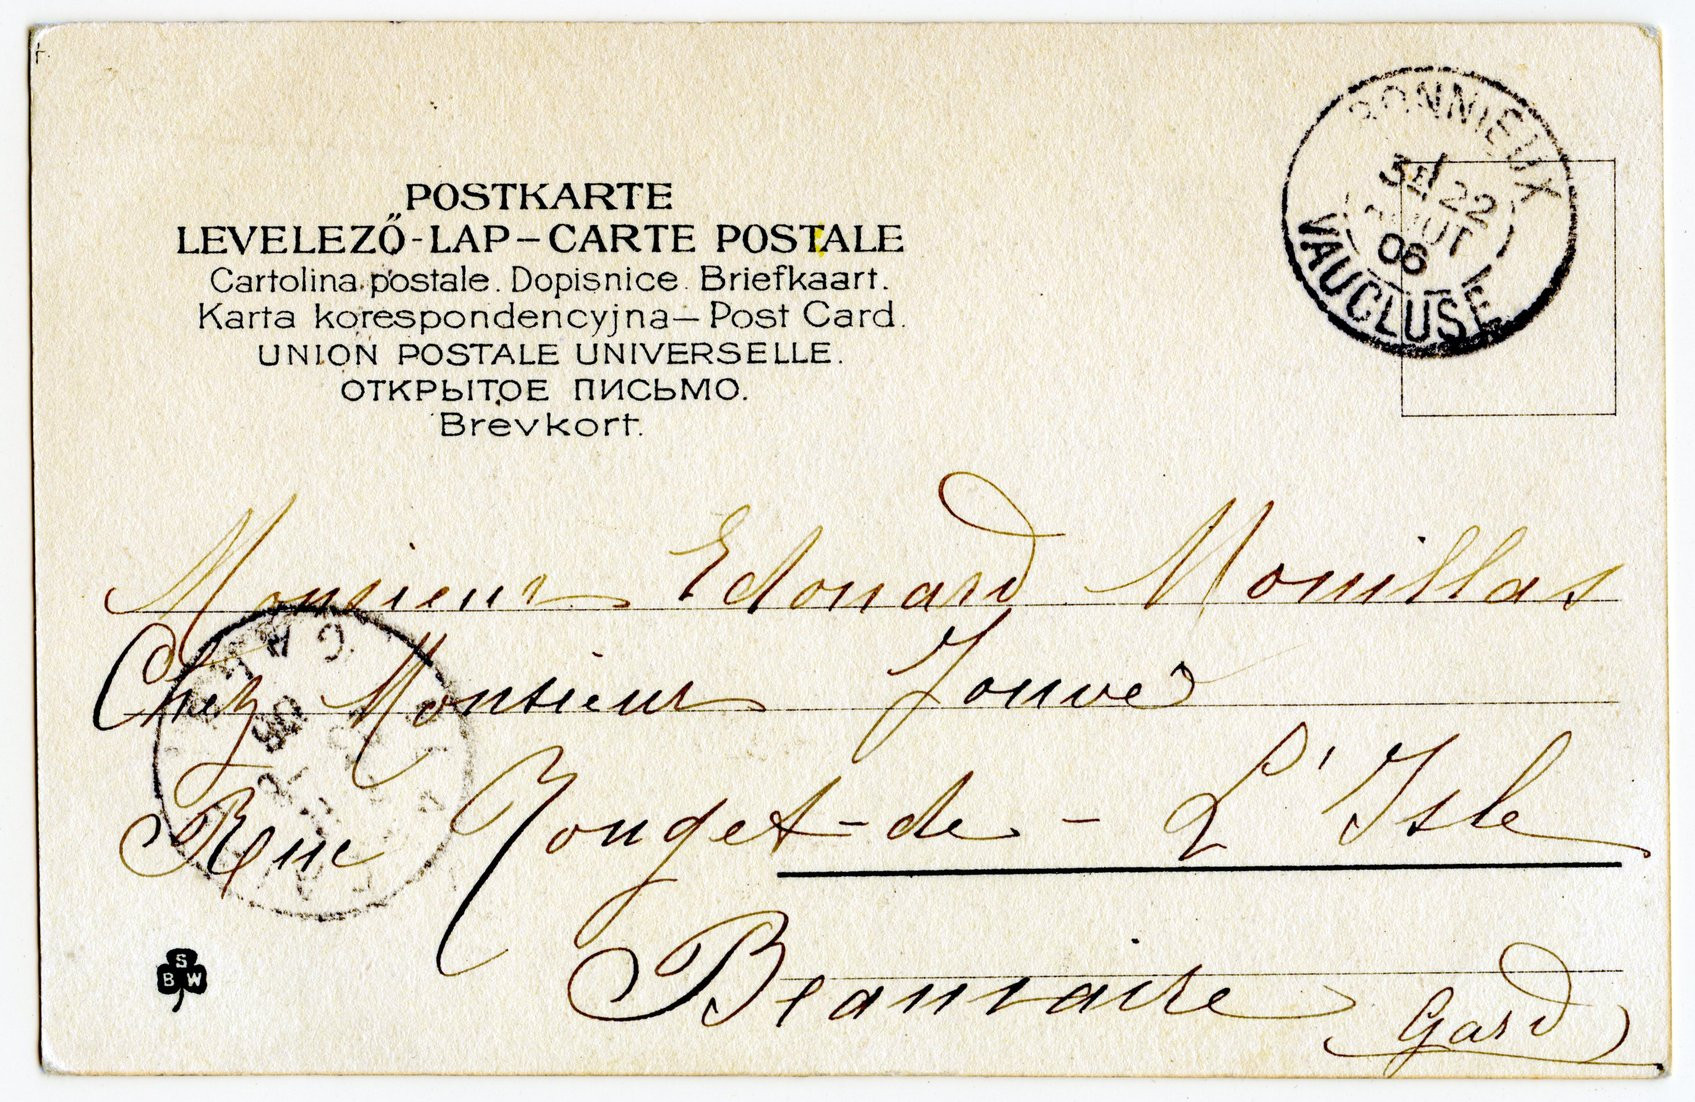 POSTKARTE
LEVELEZŐ-LAP–CARTE POSTALE
Cartolina postale. Dopisnice. Briefkaart.
Karta korespondencyjna–Post Card.
UNION POSTALE UNIVERSELLE.
ОТКРЫТОЕ ПИСЬМО.
Brevkort.
BONNIEUX
3E 22
AOUT
06
VAUCLUSE
Monsieur Edouard Mouillas
Chez Monsieur Jouve
Rue Rouget-de-L'Isle
Beaucaire
Gard
S
B W